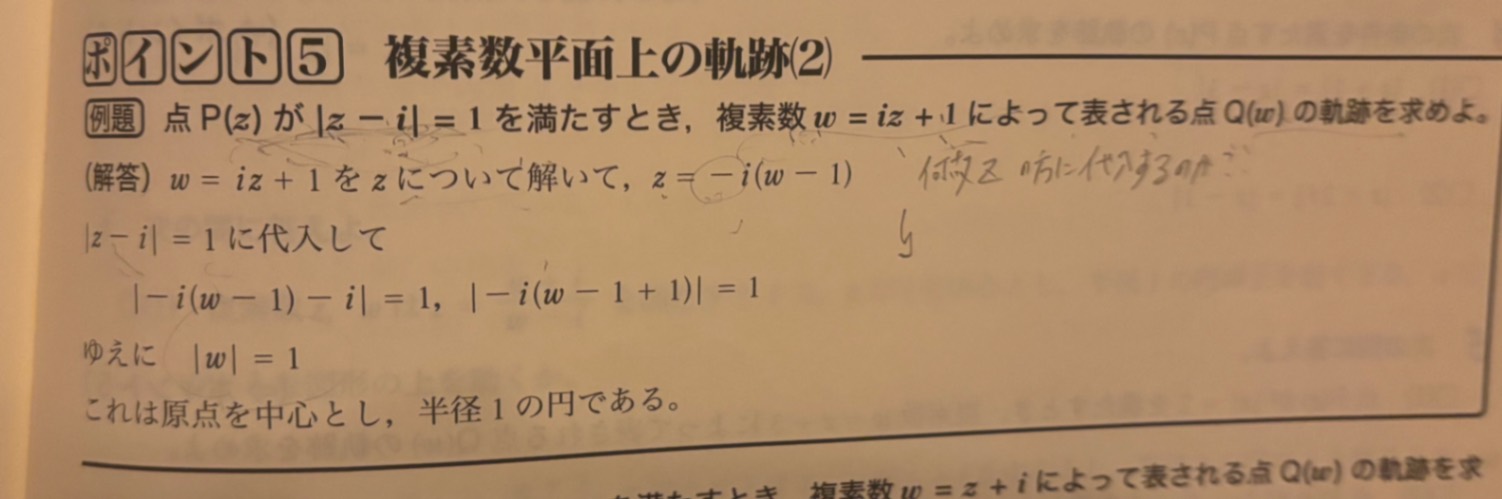 ポイント5 複素数平面上の軌跡(2)
例題 点 P(z) が |z − i| = 1 を満たすとき，複素数 w = iz + 1 によって表される点 Q(w) の軌跡を求めよ。
(解答) w = iz + 1 を z について解いて，z = −i(w − 1)
何故 z の方に代入するのか
|z − i| = 1 に代入して
|−i(w − 1) − i| = 1，|−i(w − 1 + 1)| = 1
ゆえに |w| = 1
これは原点を中心とし，半径 1 の円である。
を満たすとき，複素数 w = z + i によって表される点 Q(w) の軌跡を求